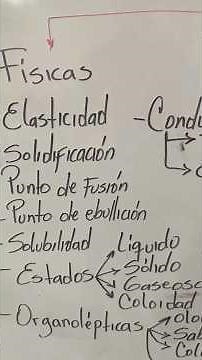 Físicas
Elasticidad
Solidificación
Punto de Fusión
- Punto de ebullición
- Solubilidad
- Estados
Líquido
Sólido
Coloidad
- Organolépticas